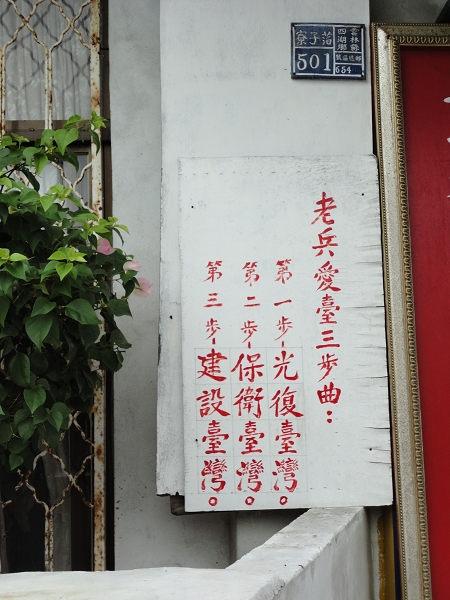 雲林縣
四湖鄉
萡子寮
郵遞區號
501
654
老兵愛臺三步曲：
第一步-光復臺灣。
第二步-保衛臺灣。
第三步-建設臺灣。